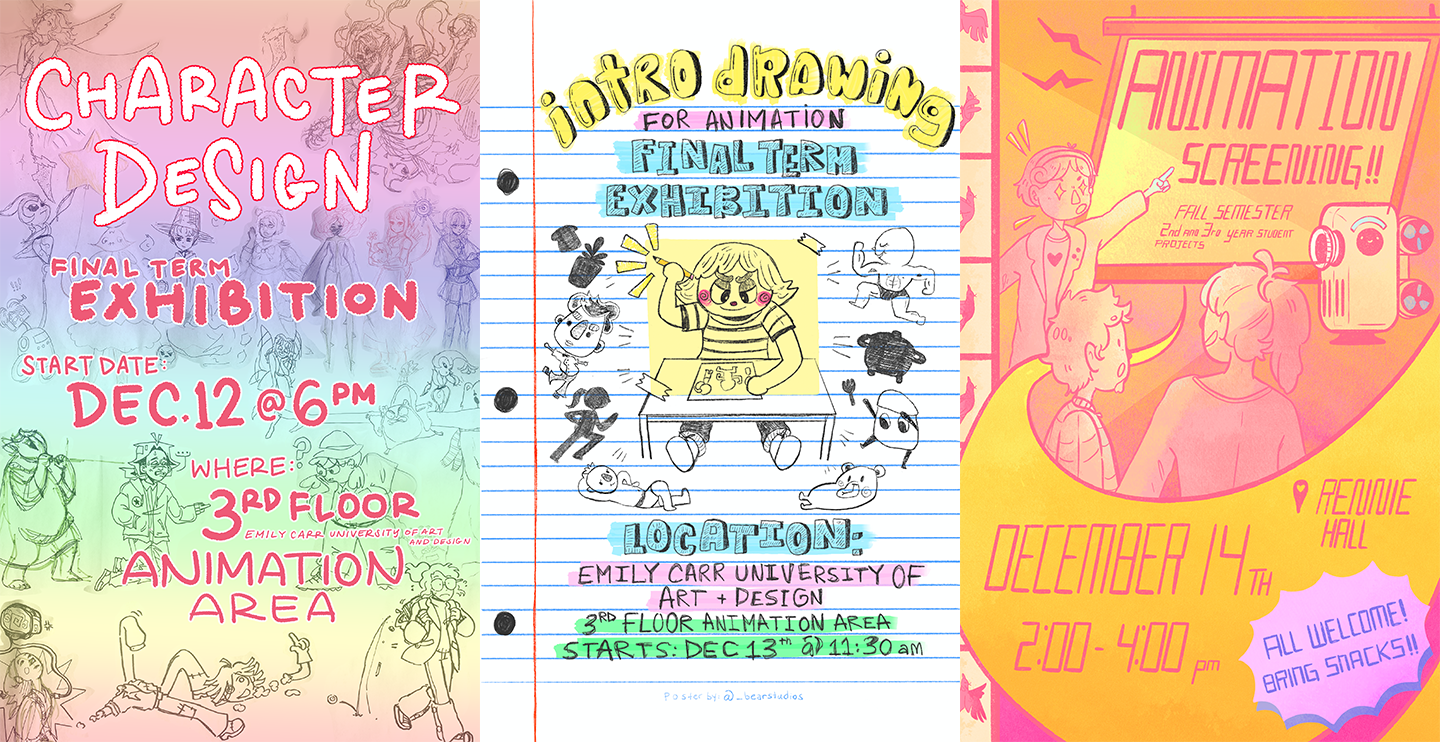 CHARACTER
DESIGN
FINAL TERM
EXHIBITION
START DATE:
DEC.12 @ 6PM
WHERE:
3RD FLOOR
EMILY CARR UNIVERSITY OF ART
AND DESIGN
ANIMATION
AREA
intro drawing
FOR ANIMATION
FINAL TERM
EXHIBITION
LOCATION:
EMILY CARR UNIVERSITY OF
ART + DESIGN
3RD FLOOR ANIMATION AREA
STARTS: DEC 13th @ 11:30 am
Poster by: @_bearstudios
ANIMATION
SCREENING!!
FALL SEMESTER
2nd AND 3rd YEAR STUDENT
PROJECTS
RENNIE
HALL
DECEMBER 14TH
2:00 - 4:00 pm
ALL WELCOME!
BRING SNACKS!!